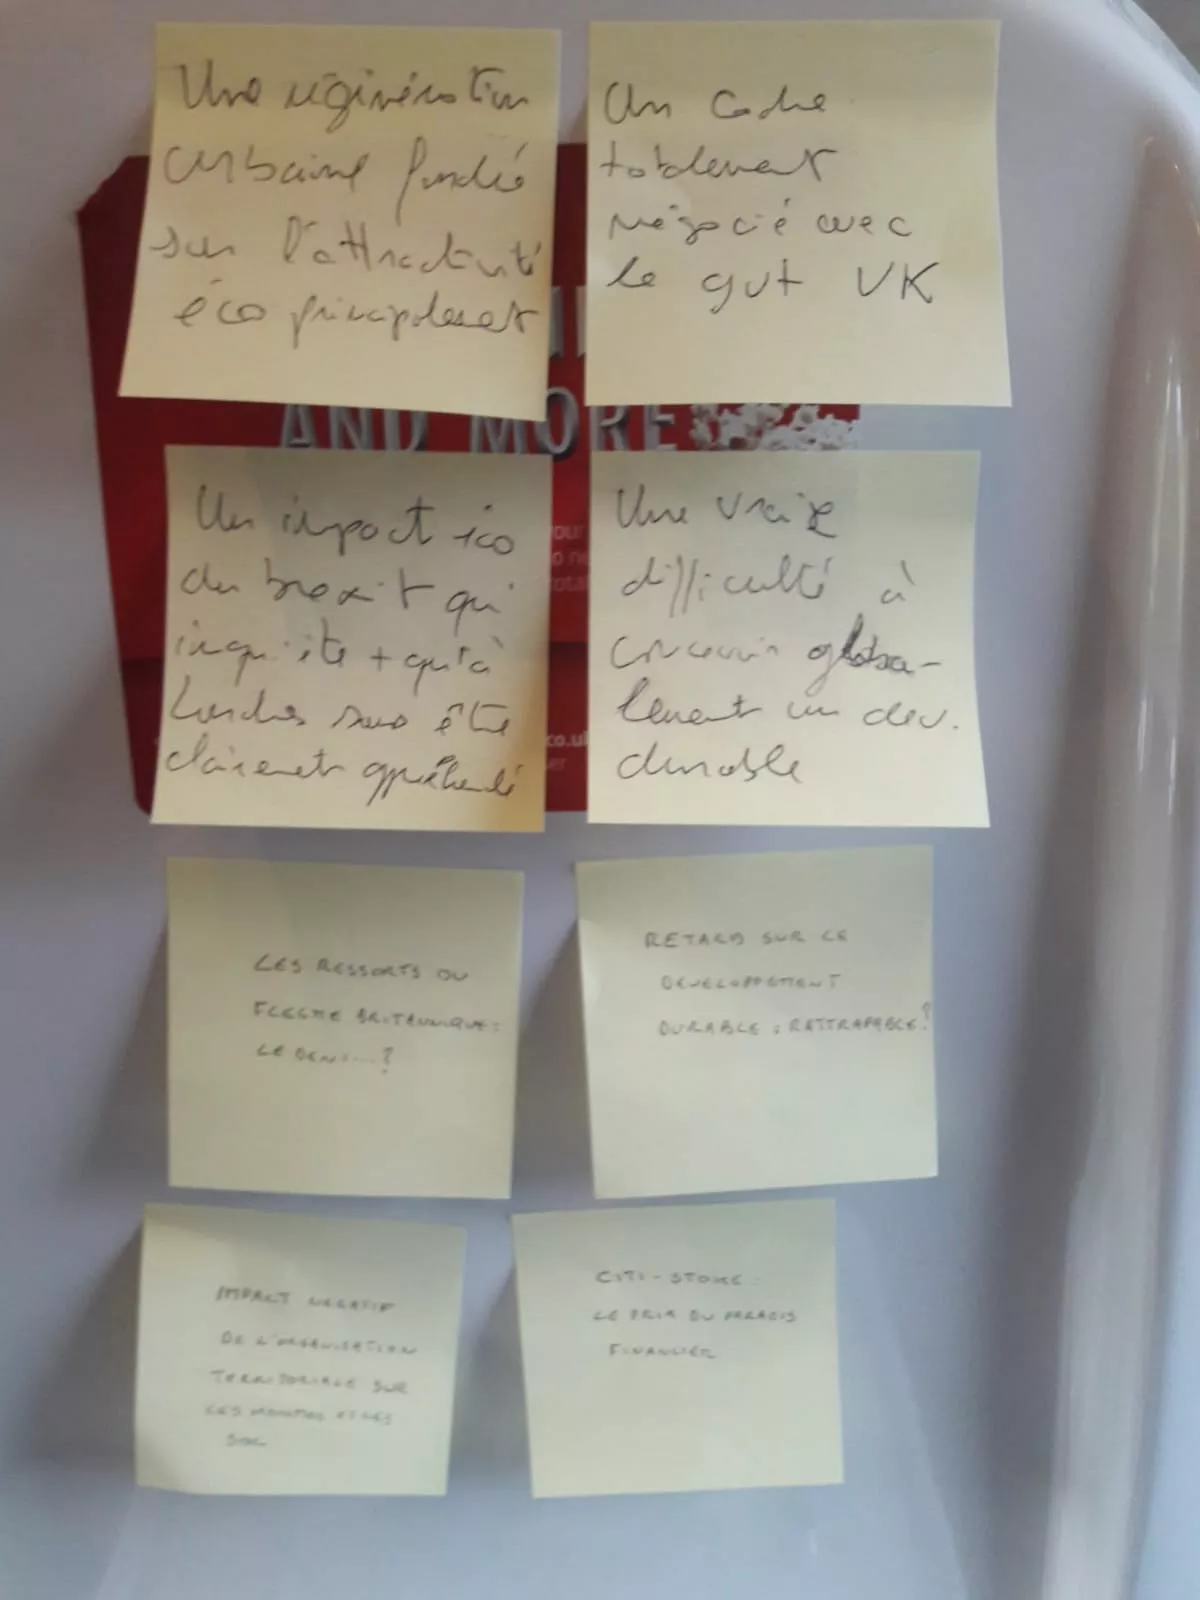 Une régénération
urbaine fondée
sur l'attractivité
éco principalement
Un cadre
totalement
négocié avec
le gvt UK
AND MORE
Un impact éco
du brexit qui
inquiète + qu'à
Londres sans être
clairement appréhendé
.co.uk
Une vraie
difficulté à
concevoir globa-
lement un dev.
durable
LES RESSORTS DU
FLEGME BRITANNIQUE :
LE DENI...?
RETARD SUR LE
DEVELOPPEMENT
DURABLE : RATTRAPABLE?
IMPACT NEGATIF
DE L'ORGANISATION
TERRITORIALE SUR
LES ET LES
CITI-STOKE :
LE PRIX DU PARADIS
FINANCIER